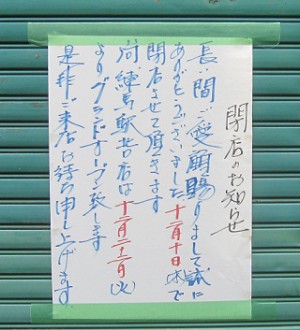 閉店のお知らせ
長い間ご愛顧賜りまして誠に
ありがとうございました十一月十日(木)で
閉店させて頂きます
尚、練馬駅前店は十一月二十一日(火)
よりグランドオープン致します
是非ご来店お待ち申し上げます